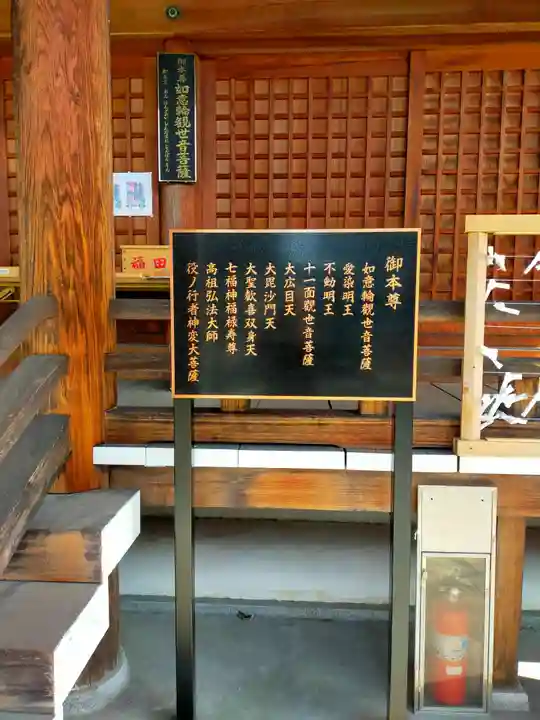 御本尊
如意輪観世音菩薩
御本尊
如意輪観世音菩薩
愛染明王
不動明王
十一面観世音菩薩
大広目天
大毘沙門天
大聖歓喜双身天
七福神福禄寿尊
高祖弘法大師
役ノ行者神変大菩薩
福田